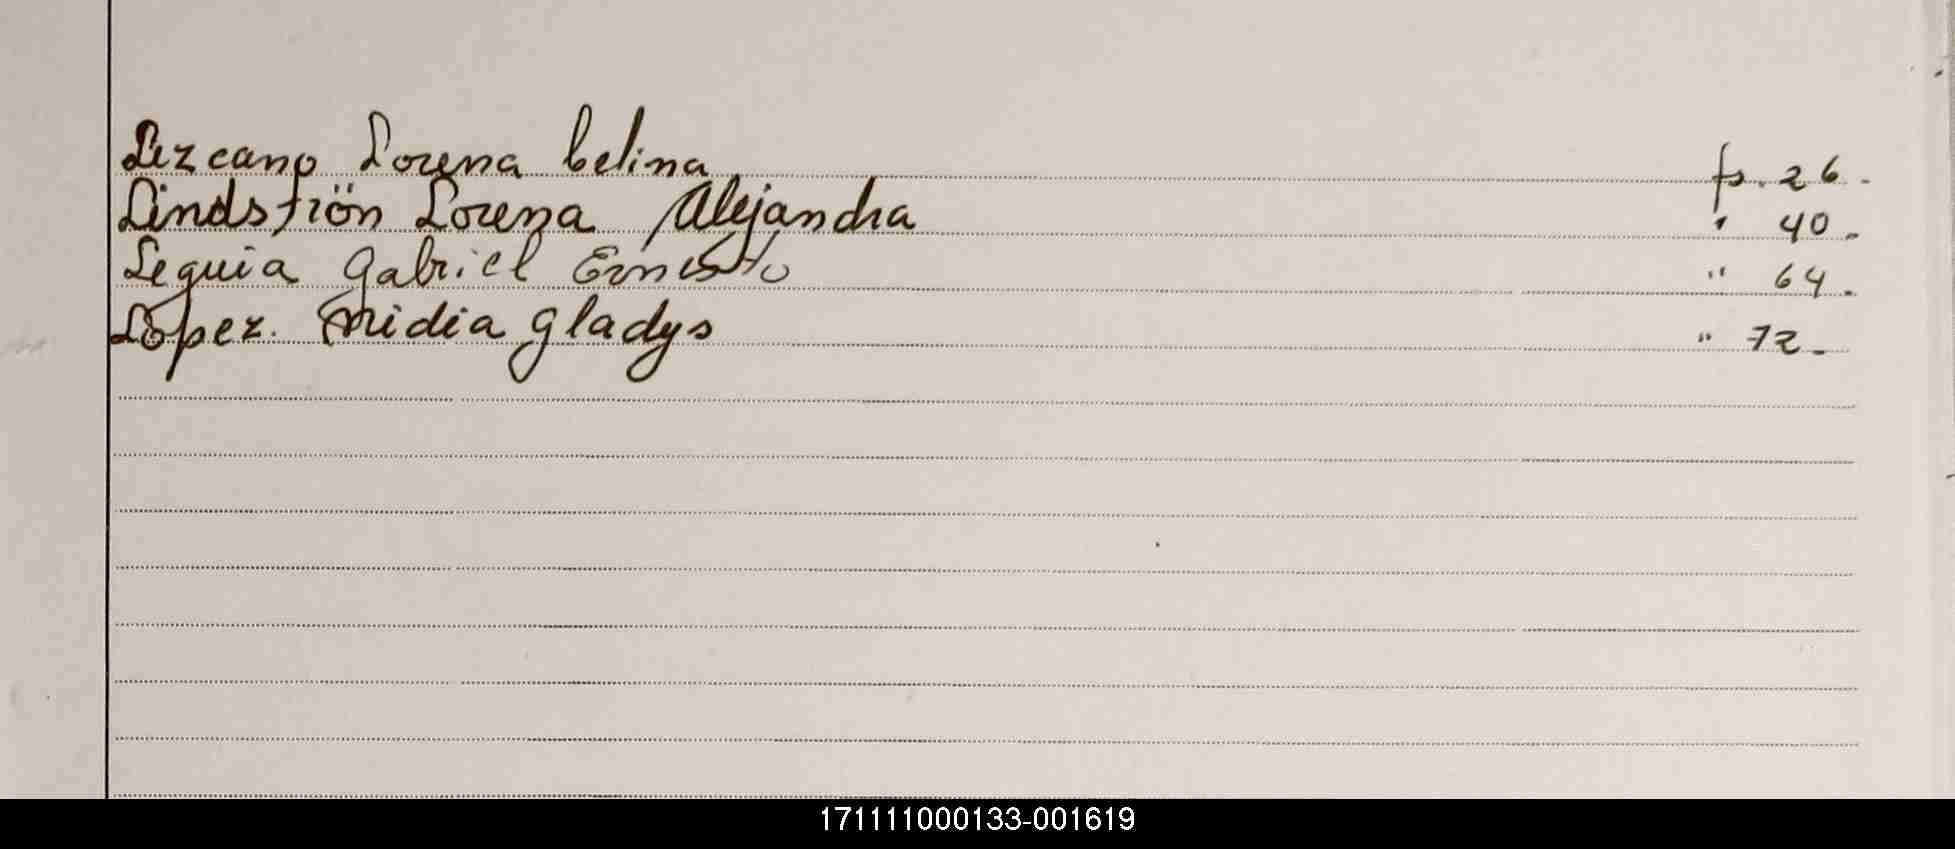 Lezcano Lorena Celina fs. 26.
Lindströn Lorena Alejandra " 40.
Leguia Gabriel Ernesto " 64.
López. Nidia Gladys " 72.
171111000133-001619